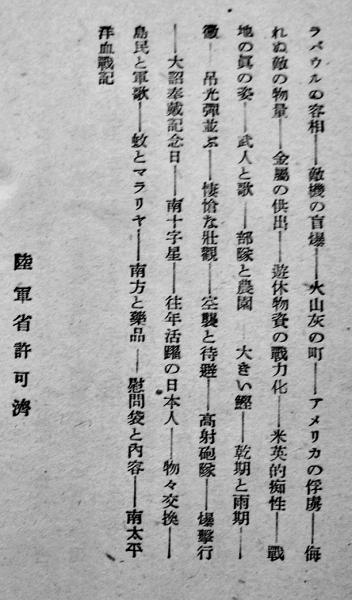 ラバウルの容相——敵機の盲爆——火山灰の町——アメリカの俘虜——侮
れぬ敵の物量——金屬の供出——遊休物資の戰力化——米英的痴性——戰
地の眞の姿——武人と歌——部隊と農園——大きい鰹——乾期と雨期——
黴——吊光彈並ぶ——悽愴な壯觀——空襲と待避——高射砲隊——爆擊行
——大詔奉戴記念日——南十字星——往年活躍の日本人——物々交換——
島民と軍歌——蚊とマラリヤ——南方と藥品——慰問袋と內容——南太平
洋血戰記
陸軍省許可濟